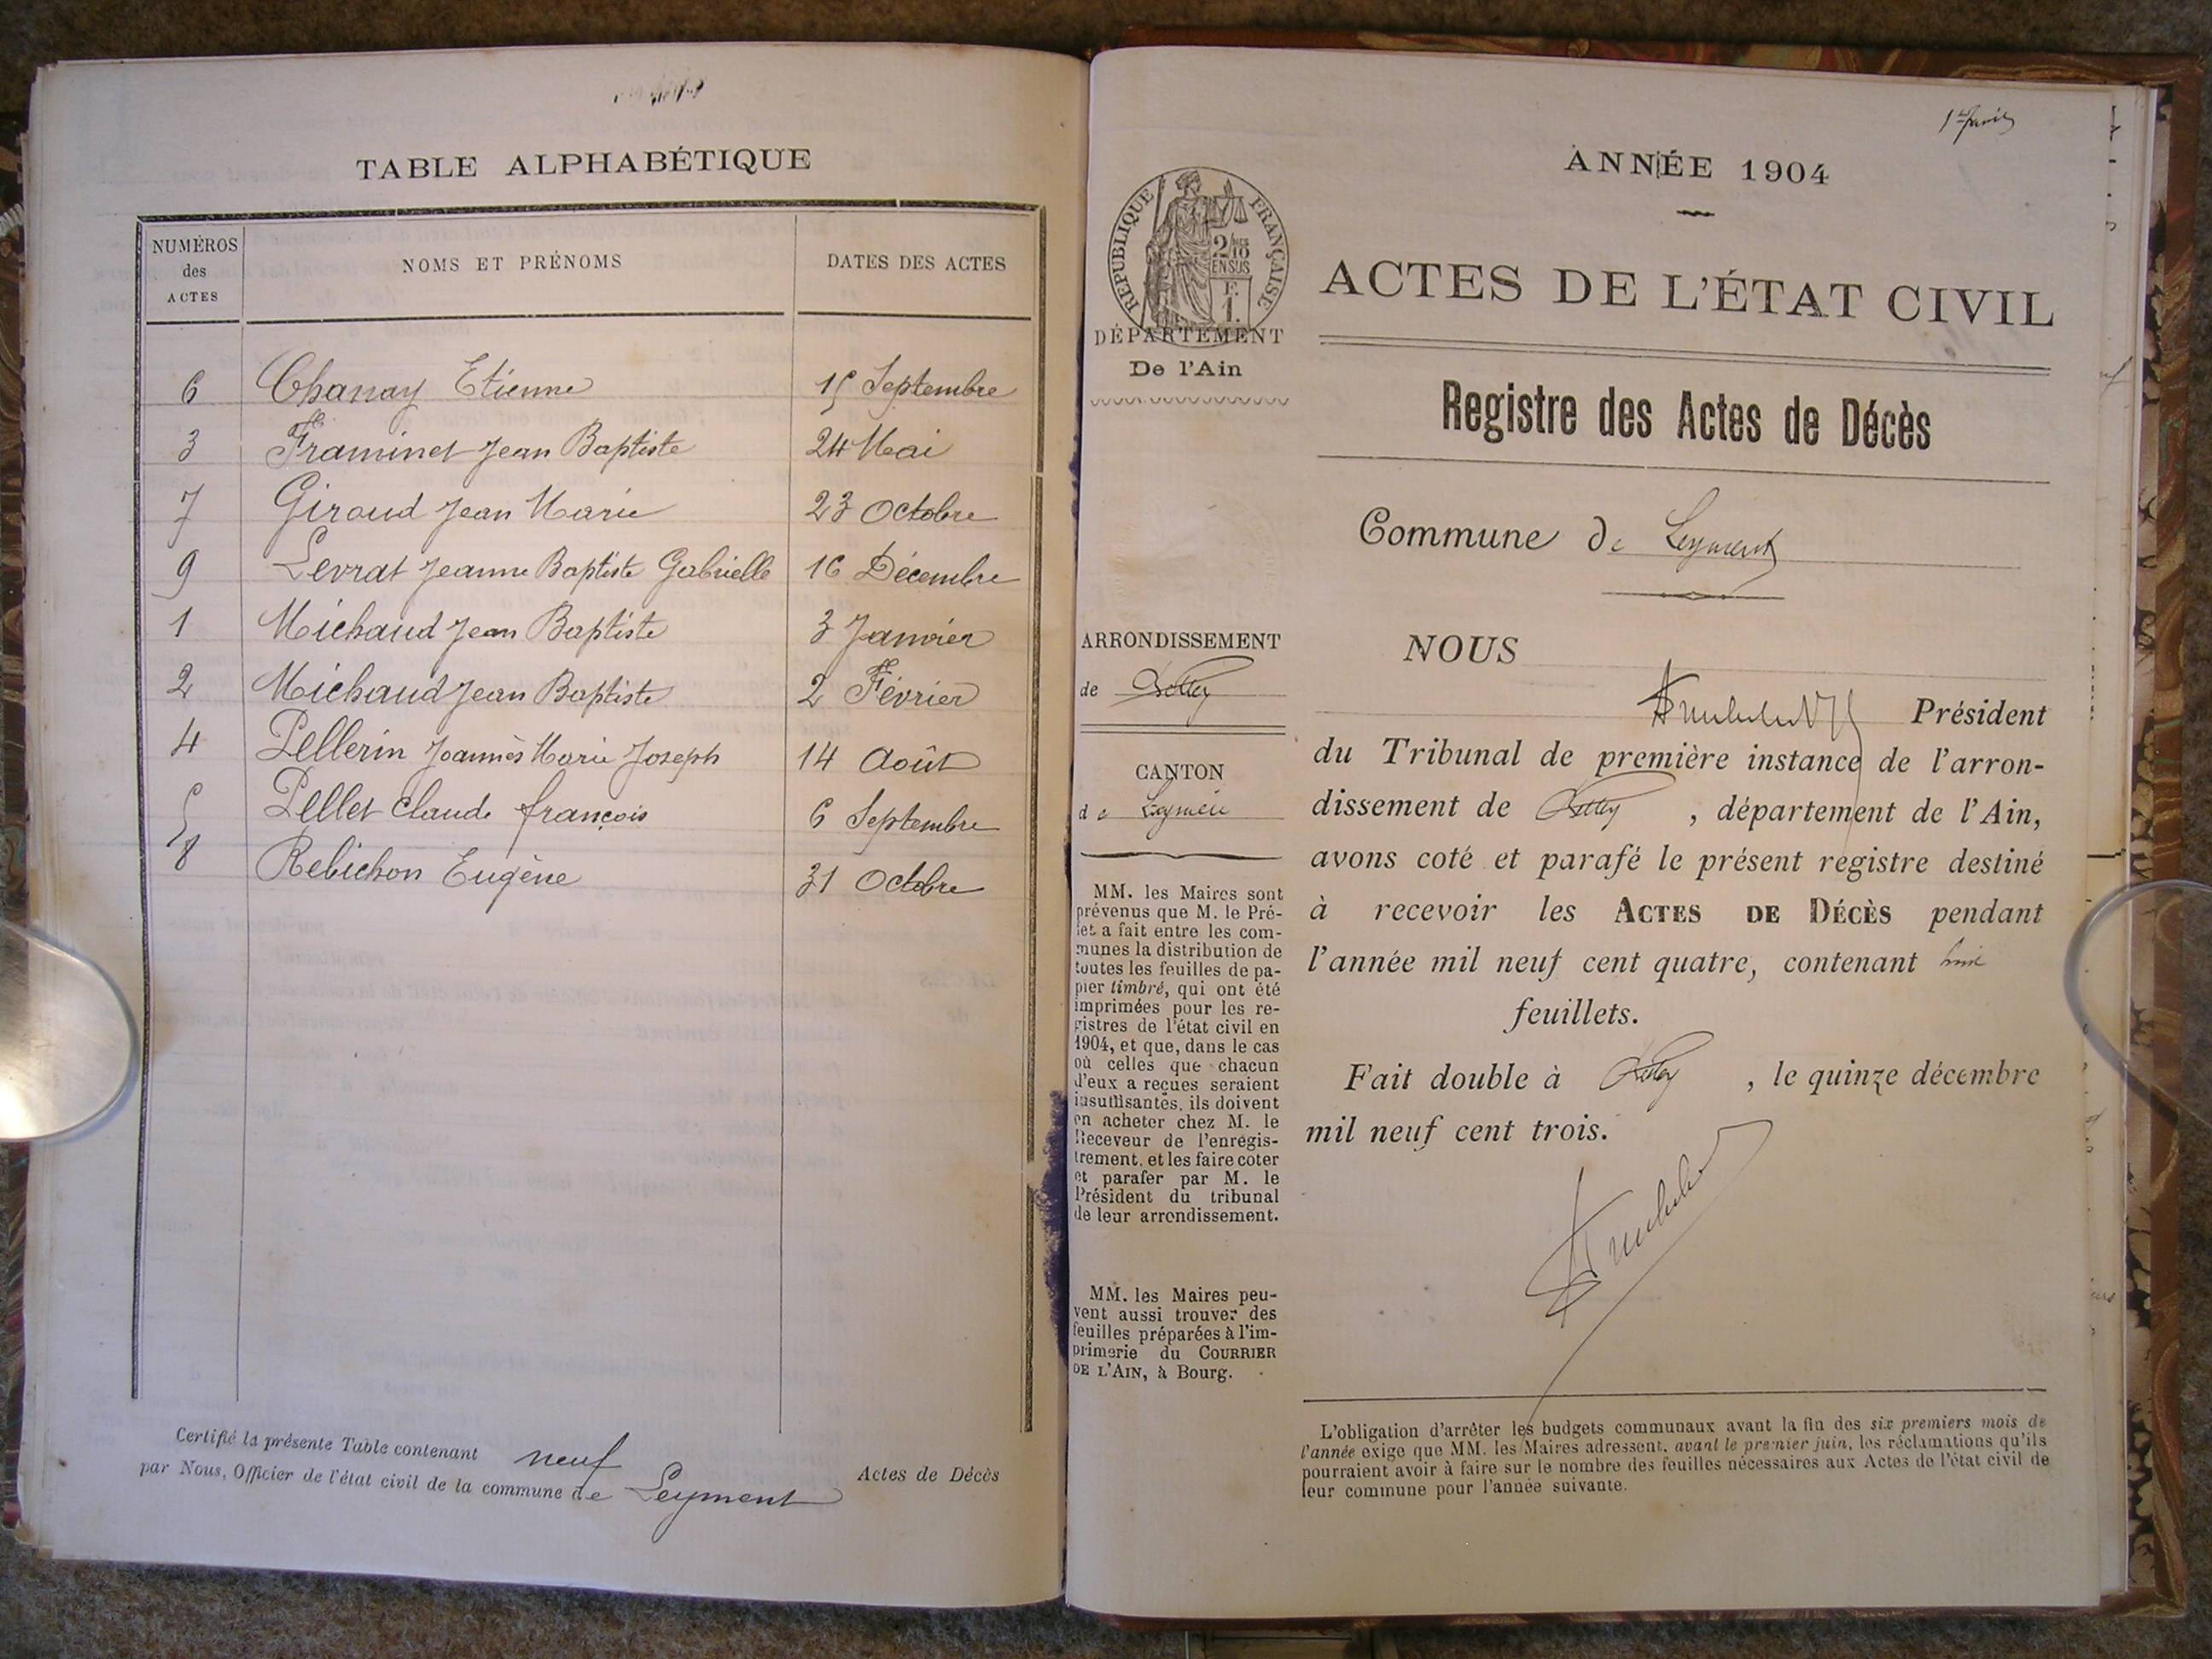 TABLE ALPHABÉTIQUE
NUMÉROS des ACTES
NOMS ET PRÉNOMS
DATES DES ACTES
6 Chanay Etienne 15 Septembre
3 Framinet Jean Baptiste 24 Mai
7 Giroud Jean Marie 23 Octobre
9 Levrat Jeanne Baptiste Gabrielle 16 Décembre
1 Michaud Jean Baptiste 3 Janvier
2 Michaud Jean Baptiste 2 Février
4 Pellerin Joannès Marie Joseph 14 Août
5 Pellet Claude françois 6 Septembre
8 Rebichon Eugène 31 Octobre
Certifié la présente Table contenant neuf Actes de Décès
par Nous, Officier de l'état civil de la commune de Leyment
ANNÉE 1904
RÉPUBLIQUE FRANÇAISE
2/10
EN SUS
F.
1.
DÉPARTEMENT
De l'Ain
ACTES DE L'ÉTAT CIVIL
Registre des Actes de Décès
Commune de Leyment
ARRONDISSEMENT
de Belley
CANTON
de Lagnieu
MM. les Maires sont
prévenus que M. le Pré-
fet a fait entre les com-
munes la distribution de
toutes les feuilles de pa-
pier timbré, qui ont été
imprimées pour les re-
gistres de l'état civil en
1904, et que, dans le cas
où celles que chacun
d'eux a reçues seraient
insuffisantes, ils doivent
en acheter chez M. le
Receveur de l'enregis-
trement, et les faire coter
et parafer par M. le
Président du tribunal
de leur arrondissement.
MM. les Maires peu-
vent aussi trouver des
feuilles préparées à l'im-
primerie du COURRIER
DE L'AIN, à Bourg.
NOUS
Président
du Tribunal de première instance de l'arron-
dissement de Belley, département de l'Ain,
avons coté et parafé le présent registre destiné
à recevoir les ACTES DE DÉCÈS pendant
l'année mil neuf cent quatre, contenant
feuillets.
Fait double à Belley, le quinze décembre
mil neuf cent trois.
L'obligation d'arrêter les budgets communaux avant la fin des six premiers mois de
l'année exige que MM. les Maires adressent, avant le premier juin, les réclamations qu'ils
pourraient avoir à faire sur le nombre des feuilles nécessaires aux Actes de l'état civil de
leur commune pour l'année suivante.